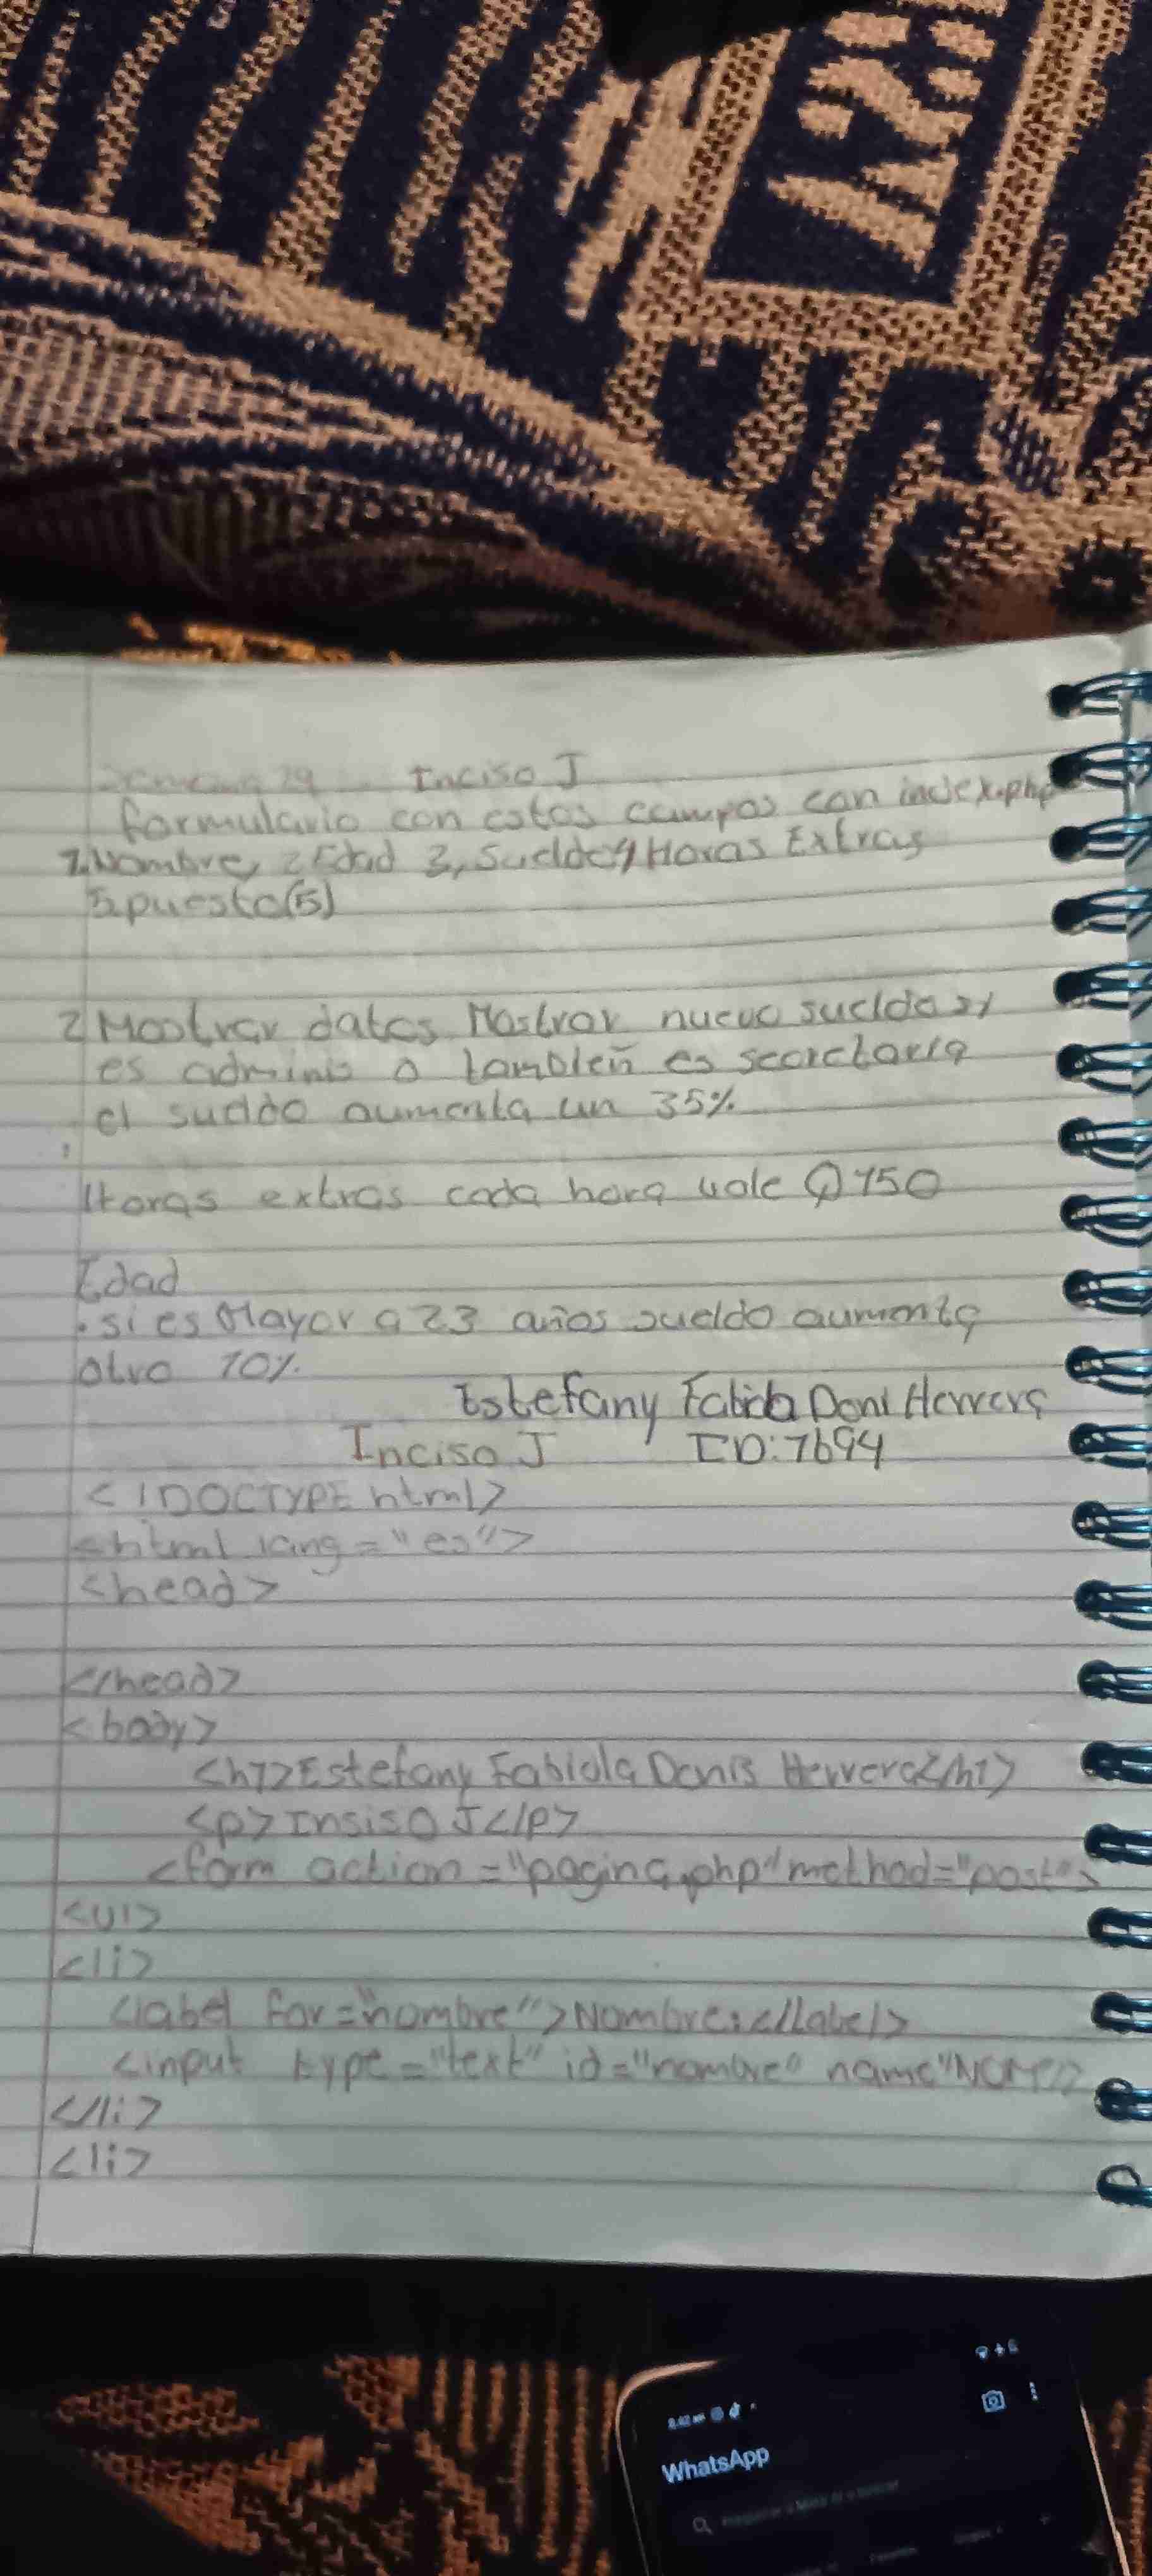 Inciso J
formulario con estos campos con index.php
1.Nombre, 2 Edad 3, Sueldo 4 Horas Extras
5 puesto(5)
2 Mostrar datos Mostrar nuevo sueldo si
es adminis o tambien es secretaria
el sueldo aumenta un 35%
Horas extras cada hora vale Q150
Edad
. si es Mayor a 23 años sueldo aumenta
otro 10%
Estefany Herrera
Inciso J ID:7694
<!DOCTYPE html>
<html lang="es">
<head>
</head>
<body>
<h1>Estefany Fabiola Denis Herrera</h1>
<p>Insiso J</p>
<form action="pagina.php" method="post">
<ul>
<li>
<label for="nombre">Nombre:</label>
<input type="text" id="nombre" name
</li>
<li>
WhatsApp